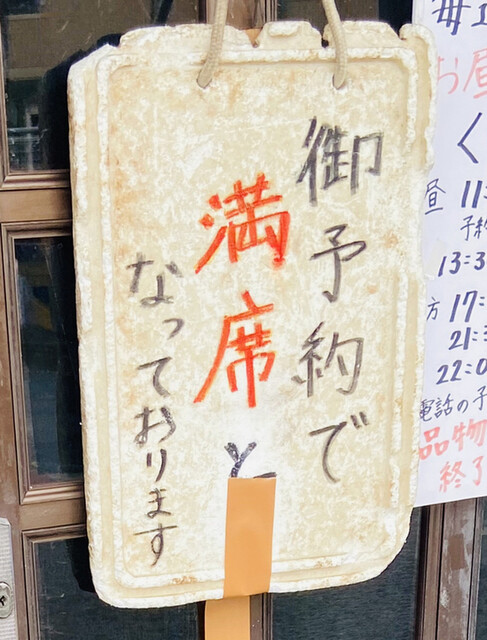 御予約で
満席と
なっております
毎
お昼
く
昼 11:
予約
13:3
方 17:
21:
22:0
電話の予
品物
終了